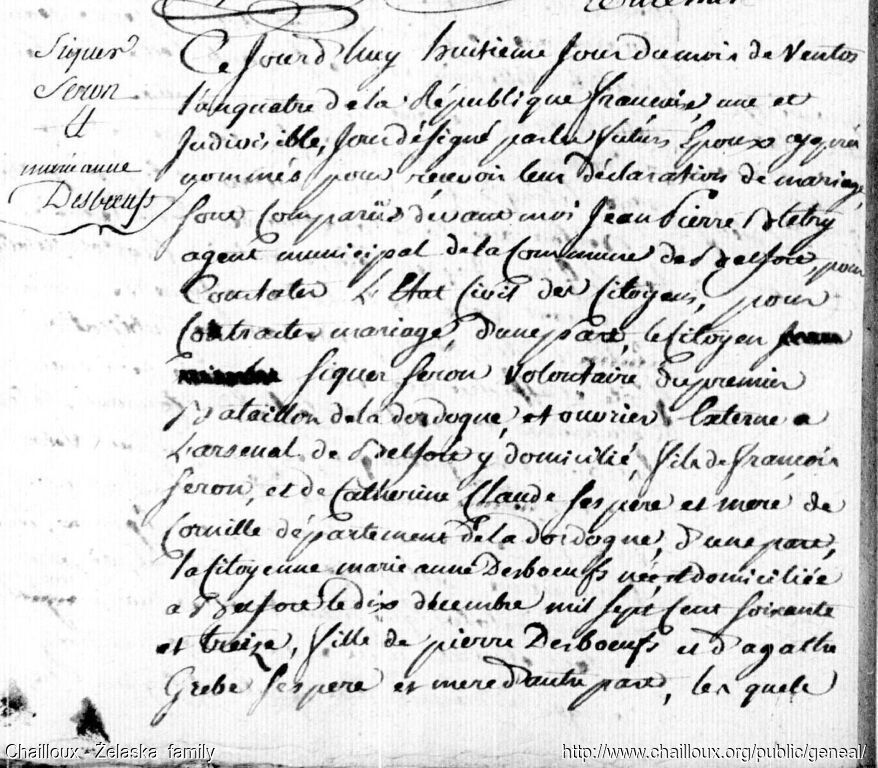 Siquer
Seron
4
marie anne
Desboeufs
Ce Jourd'huy huitieme Jour du mois de Ventos
l'an quatre de la République francoise, une et
Indivisible, Jour désigné par les futurs Epoux cy après
nommés pour recevoir leur déclaration de mariage,
sont Comparüs devant moi Jean Pierre
agent municipal de la Commune de Belfort, pour
Constater L'Etat Civil des Citoyens, pour
Contracter mariage, d'une part, le Citoyen
Siquer Seron Volontaire du premier
Bataillon de la dordogne, et ouvrier Externe a
L'arsenal de Belfort y domicilié, fils de francois
Seron, et de Catherine Claude ses pere et mere de
Cornille département de la dordogne, d'une part,
la Citoyenne marie anne Desboeufs née et domiciliée
a Belfort le dix décembre mil sept Cent soixante
et treize, fille de pierre Desboeufs et d'agathe
Grebe ses pere et mere d'autre part, les quels
Chailloux - Zelaska family
http://www.chailloux.org/public/geneal/